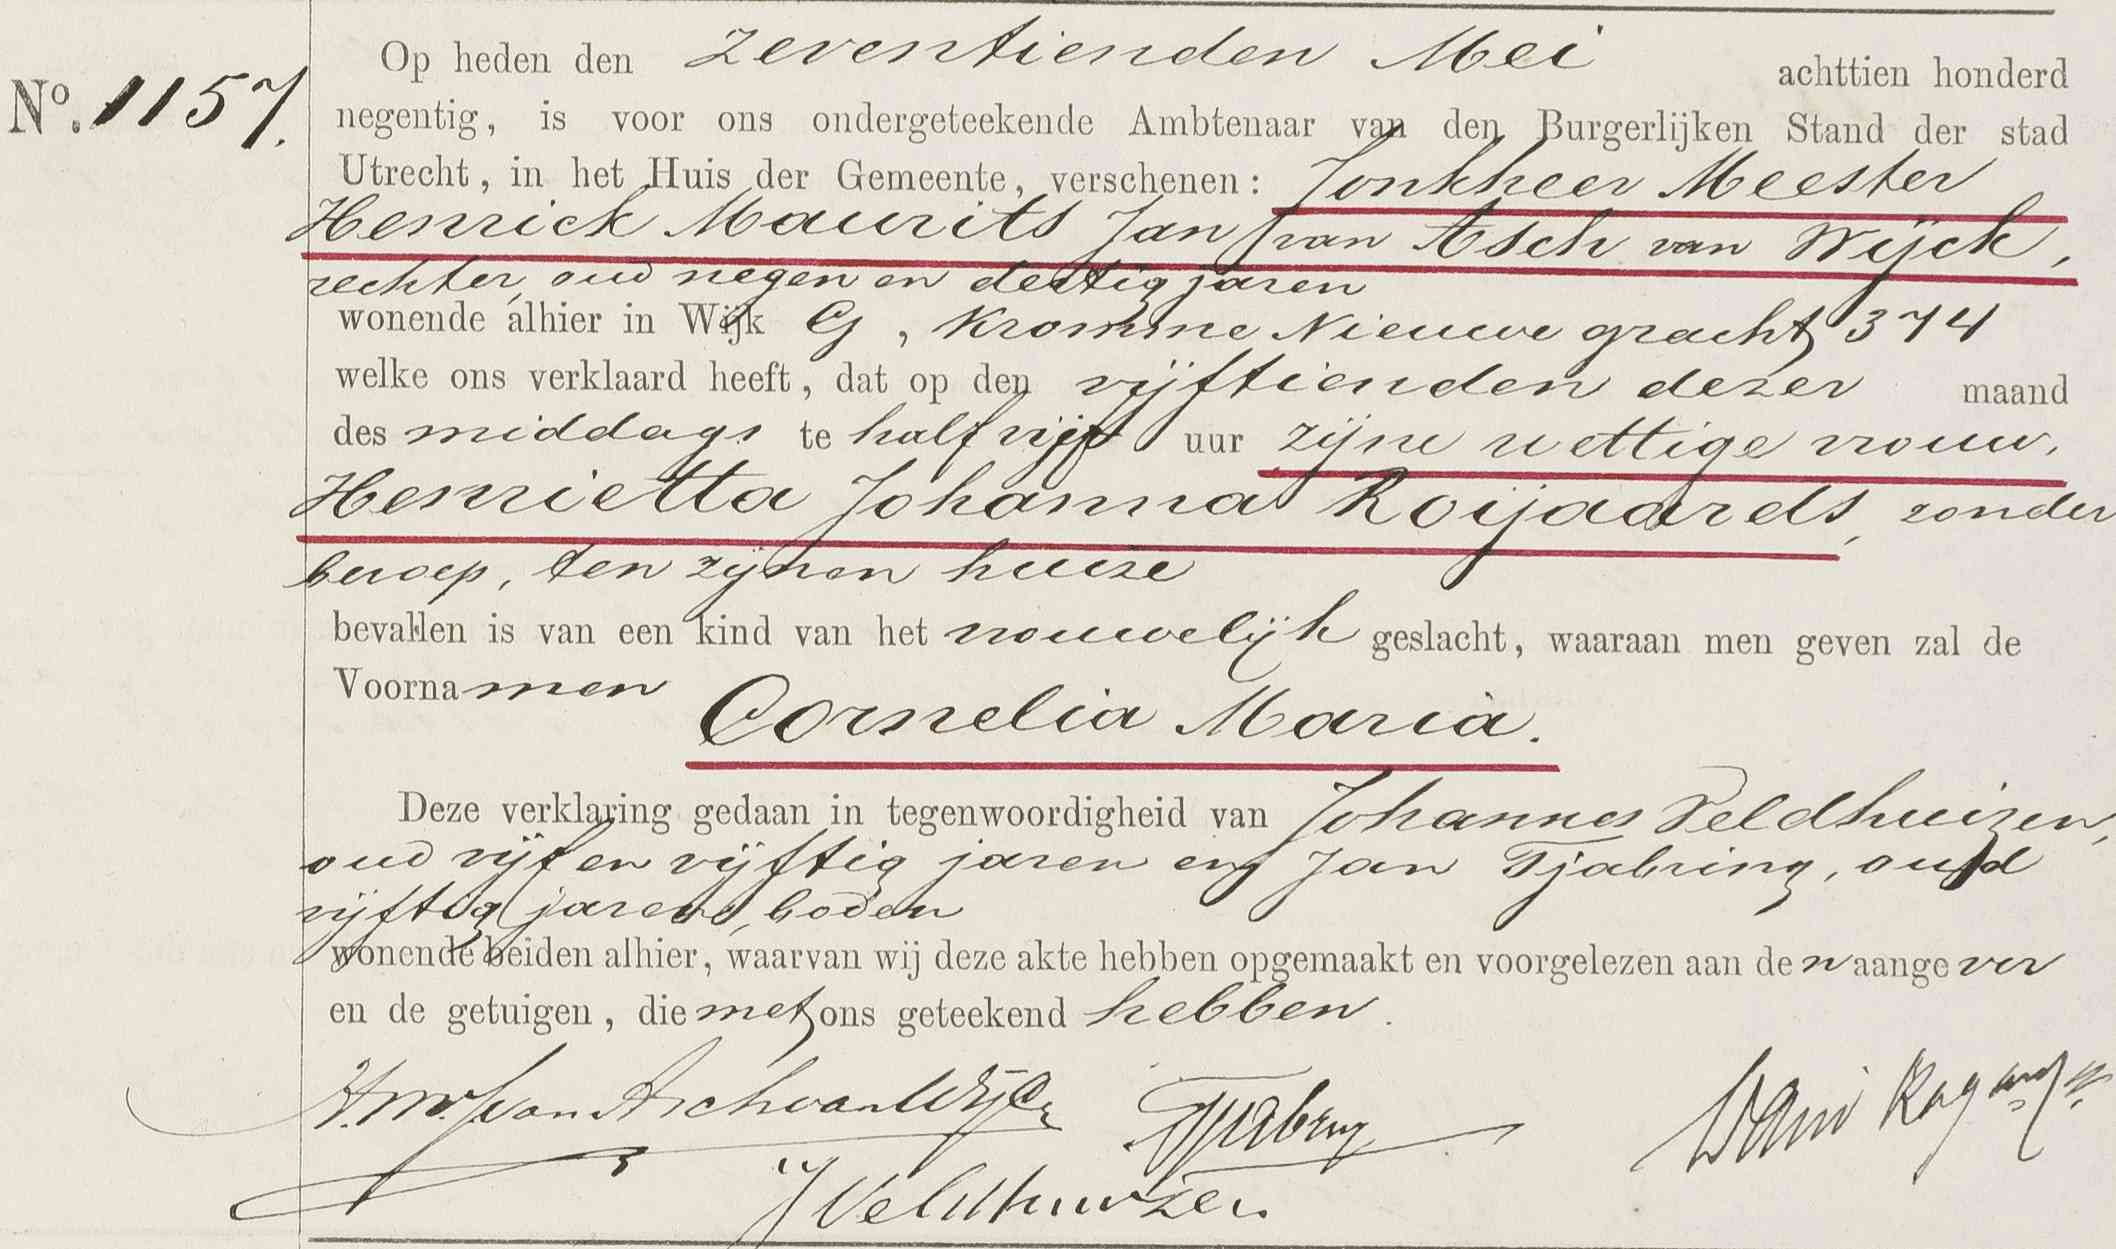 Op heden den zeventienden Mei achttien honderd
No. 1157.
negentig, is voor ons ondergeteekende Ambtenaar van den Burgerlijken Stand der stad
Utrecht, in het Huis der Gemeente, verschenen: Jonkheer Meester
Henrick Maurits Jan van Asch van Wijck,
rechter, oud negen en dertig jaren
wonende alhier in Wijk G, Kromme Nieuwe gracht 374
welke ons verklaard heeft, dat op den vijftienden dezer maand
des middags te half vijf uur zijne wettige vrouw,
Henrietta Johanna Roijaards, zonder
beroep, ten zijnen huize
bevallen is van een kind van het vrouwelijk geslacht, waaraan men geven zal de
Voornamen
Cornelia Maria.
Deze verklaring gedaan in tegenwoordigheid van Johannes Veldhuizen,
oud vijf en vijftig jaren en Jan Tjabring, oud
vijftig jaren, boden
wonende beiden alhier, waarvan wij deze akte hebben opgemaakt en voorgelezen aan den aangever
en de getuigen, die met ons geteekend hebben.
H.M.J. van Asch van Wijck
Tjabring
J Veldhuizen.